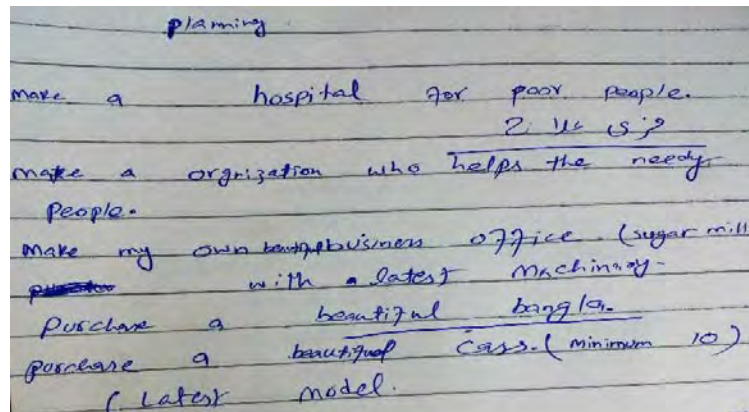 planning
make a hospital for poor people.
make a orgnization who helps the needy
People.
make my own beautiful business office (sugar mill
with a latest machinary.
Purchase a beautiful bangla.
purchase a beautiful cars. (minimum 10)
(Latest model.